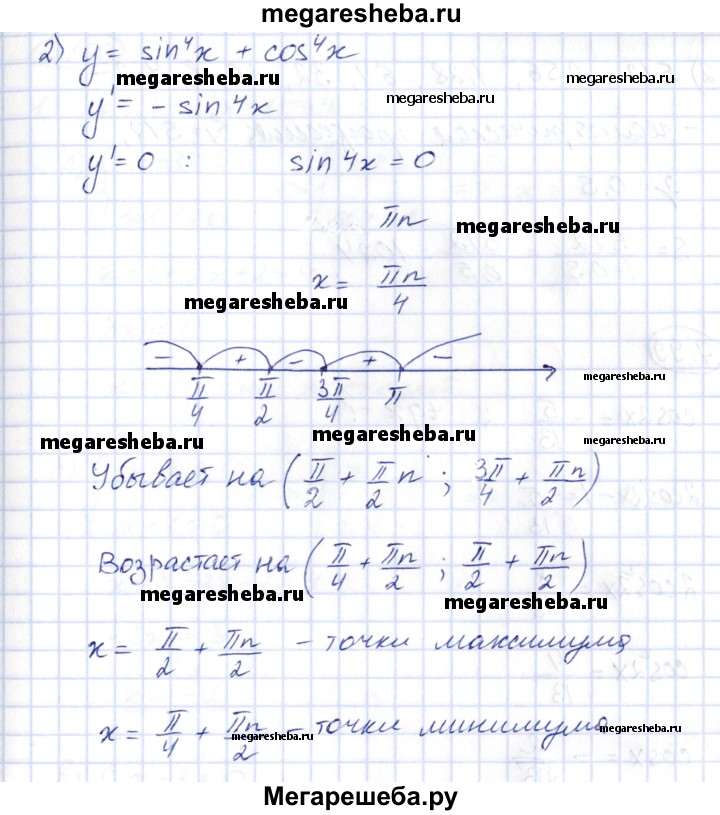 megaresheba.ru
2) y = sin⁴x + cos⁴x
megaresheba.ru
megaresheba.ru
y' = - sin 4x
y' = 0 : sin 4x = 0
πn
megaresheba.ru
x = πn/4
megaresheba.ru
- + - + -
π/4 π/2 3π/4 π
megaresheba.ru
megaresheba.ru
megaresheba.ru
megaresheba.ru
Убывает на (π/2 + π/2 n ; 3π/4 + πn/2)
Возрастает на (π/4 + πn/2 ; π/2 + πn/2)
megaresheba.ru
megaresheba.ru
x = π/2 + πn/2 - точки максимума
x = π/4 + πn/2 - точки минимума
megaresheba.ru
megaresheba.ru
Мегарешеба.ру